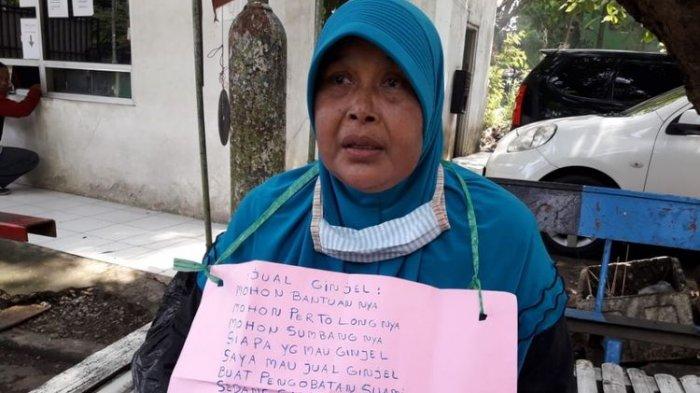 JUAL GINJEL:
MOHON BANTUAN NYA
MOHON PERTOLONG NYA
MOHON SUMBANG NYA
SIAPA YG MAU GINJEL
SAYA MAU JUAL GINJEL
BUAT PENGOBATAN
SEDANG